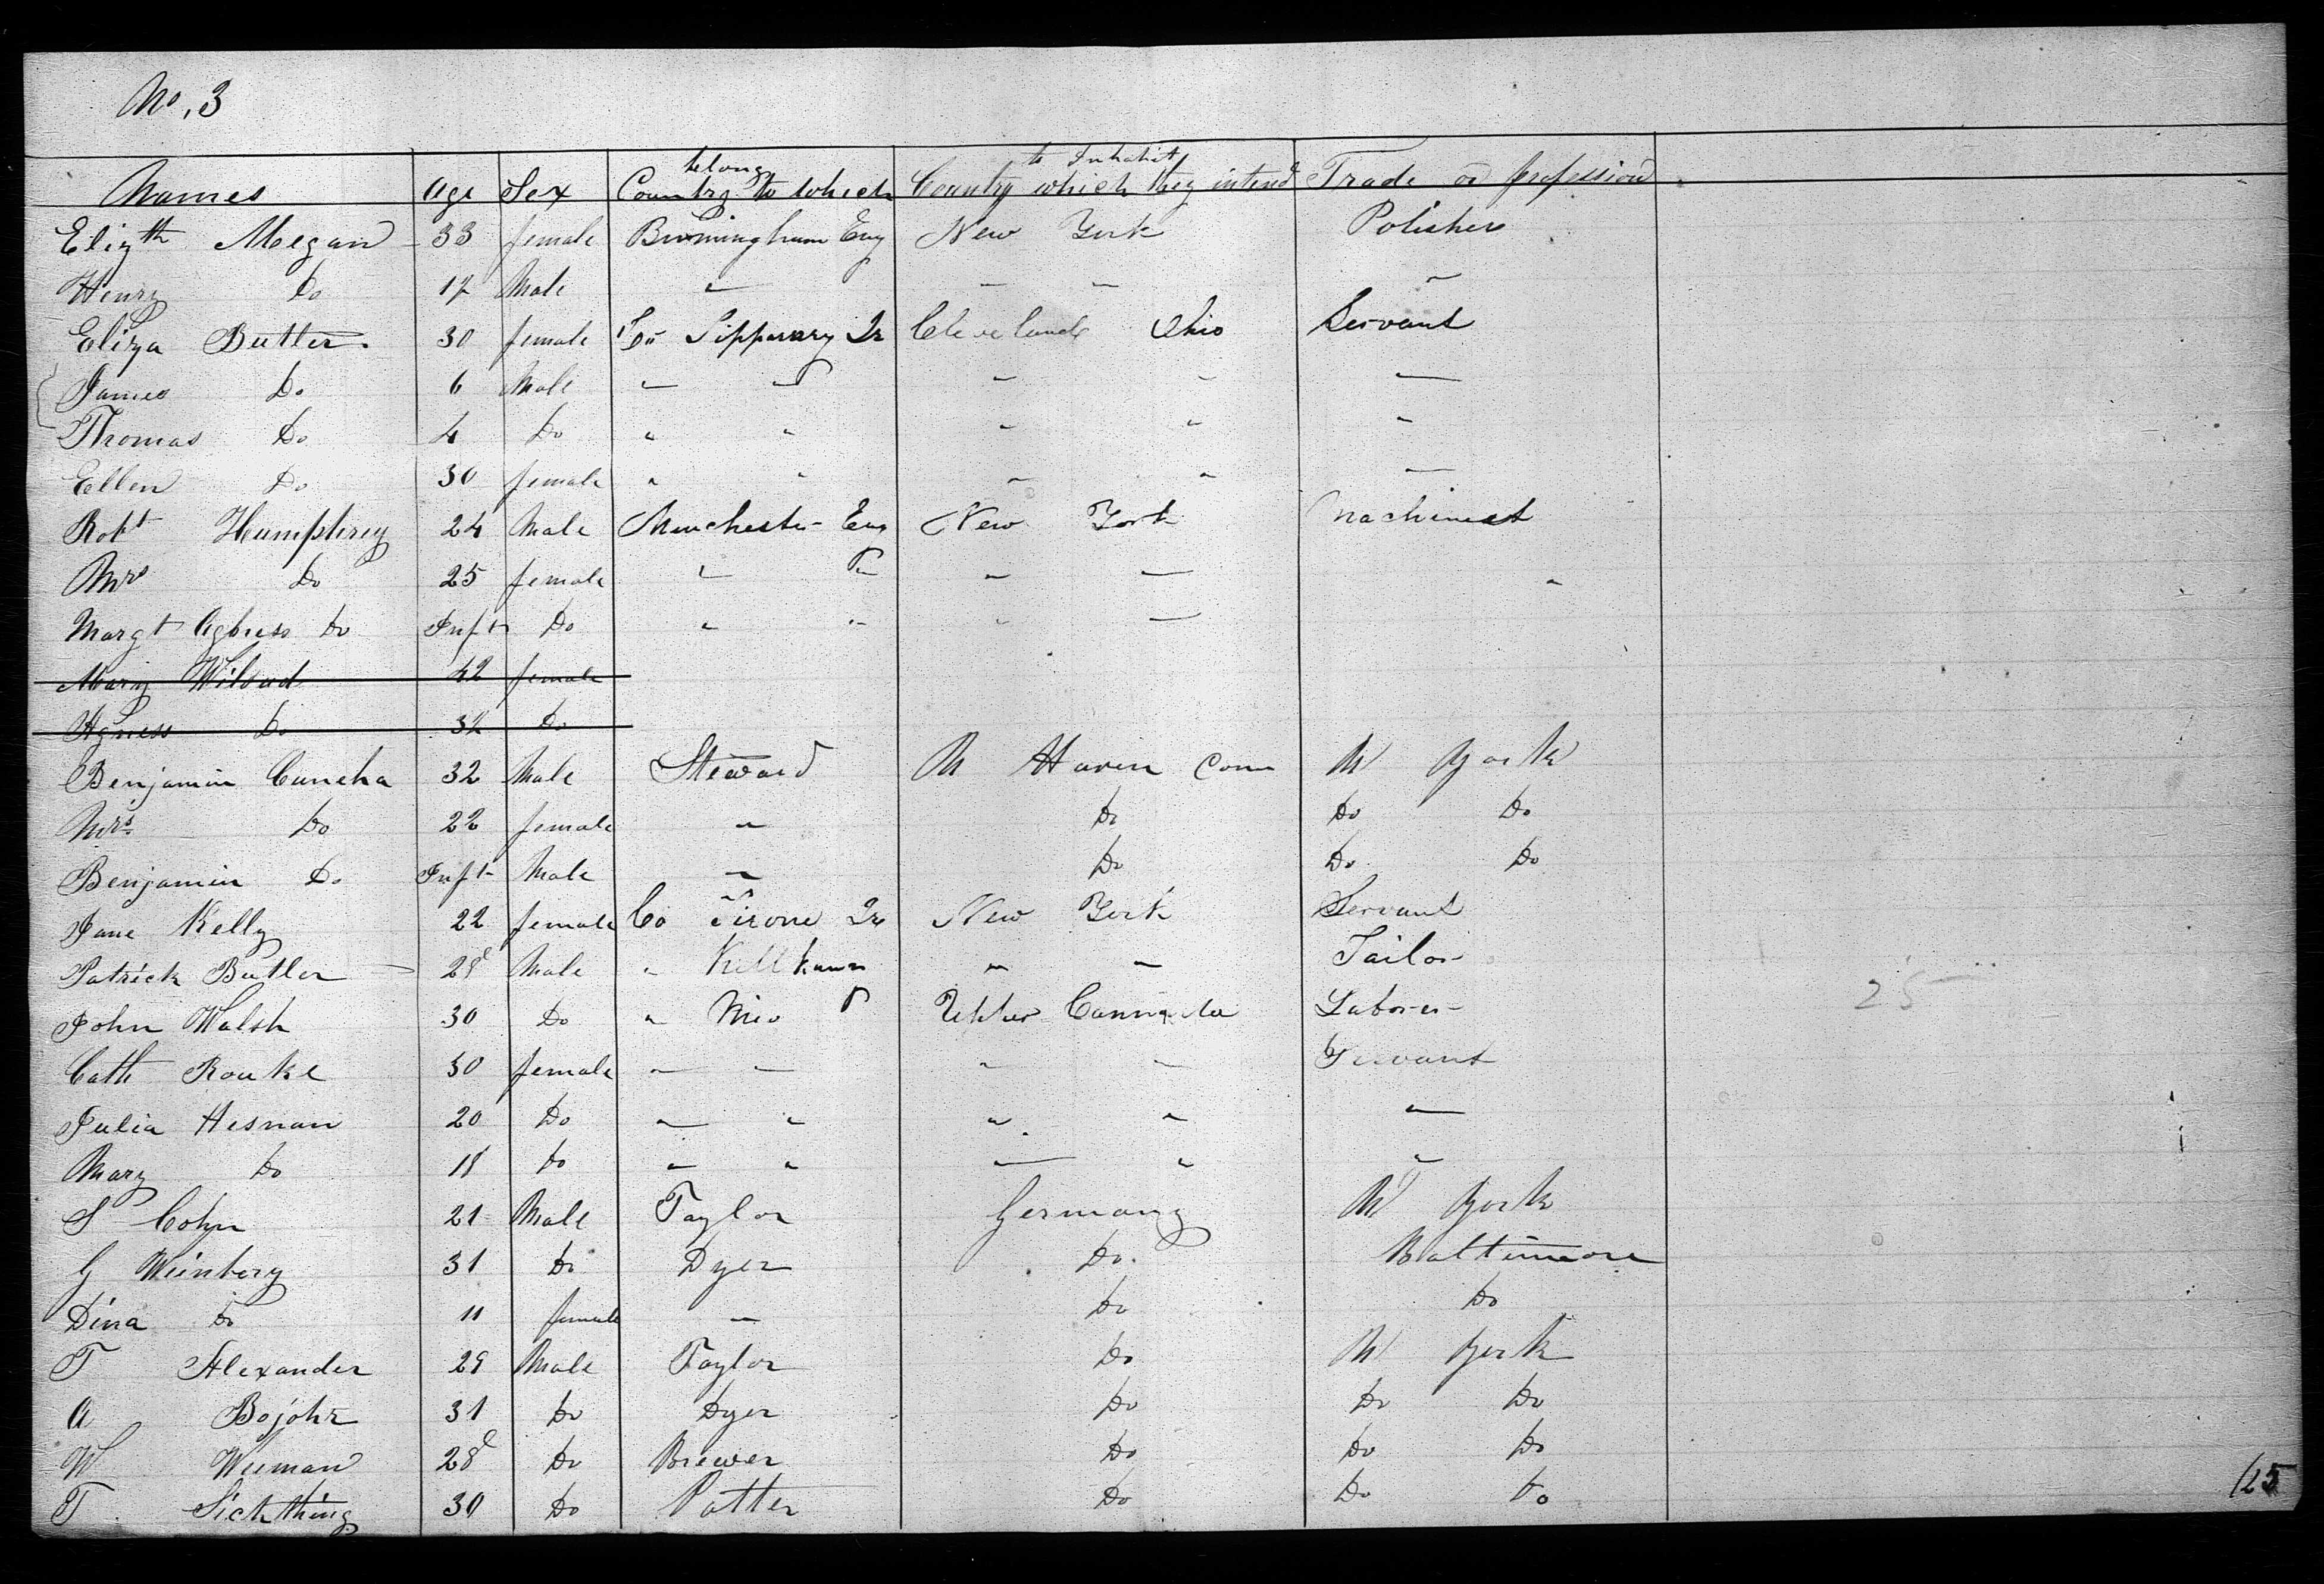 No. 3
Names Age Sex Country to which belong Country which they intend to Inhabit Trade or profession
Elizth Megan 33 female Birmingham Eng New York Polisher
Henry Do 12 Male " " " "
Eliza Butler 30 female Co Tipparary Ir Cleveland Ohio Servant
James Do 6 Male " " " " "
Thomas Do 4 Do " " " " "
Ellen Do 30 female " " " " "
Robt Humphrey 24 Male Manchester Eng New York Machinest
Mrs Do 25 female " " " " "
Margt Agness Do Inft Do " " " "
Mary 42 female
Agness Do 32 Do
Benjamin Cuncha 32 Male Steward N Haven Conn N York
Mrs Do 22 female " Do Do Do
Benjamin Do Inft Male " Do Do Do
Jane Kelly 22 female Co Tirone Ir New York Servant
Patrick Butler 28 Male " " " Tailor
John Walsh 30 Do " Mio " Upper Cannada Laborer
Cath Rouke 30 female " " " " Servant
Julia Hesnan 20 Do " " " " "
Mary Do 18 Do " " " " "
S Cohn 21 Male Taylor Germany N York
G Weinberg 31 Do Dyer Do Baltimore
Dina Do 11 female " Do Do
T Alexander 29 Male Taylor Do N York
A Bojohr 31 Do Dyer Do Do Do
W Wieman 28 Do Brewer Do Do Do
T Sickthing 30 Do Potter Do Do Do
25
125